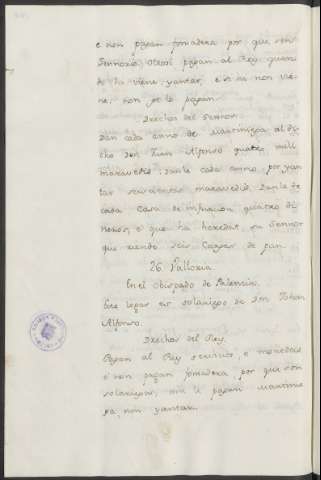 e non pagan fonsadera por que son
Sennorio. Otrosi pagan al Rey quan-
do ha viene yantar, e si ha non vie-
ne, non ge la pagan.
Derechos del Sennor.
Dan cada anno de martiniega al di-
cho Don Juan Alfonso quatro mill
maravedis: danle cada anno por yan-
tar seiscientos maravedis. Danle de
cada casa de infurcion quatro di-
neros, e que ha heredat, su Sennor
que riende seis cargas de pan.
26. Palloxia
En el obispado de Palencia.
Este logar es solariego de Don Johan
Alfonso.
Derechos del Rey.
Pagan al Rey servicios, e monedas
e non pagan fonsadera, por que son
solariegos, nin le pagan martinie-
ga, nin yantar.